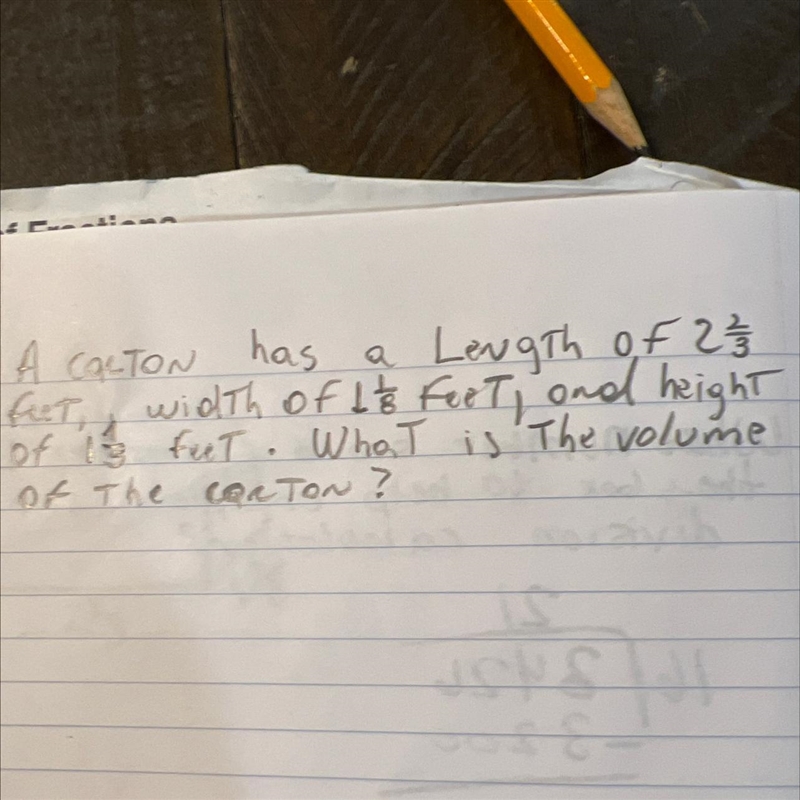 of Fractions
A carton has a Length of 2 2/3
feet, width of 1 1/8 feet, and height
of 1 1/3 feet. What is The volume
of The carton?
21
16 3424
- 320